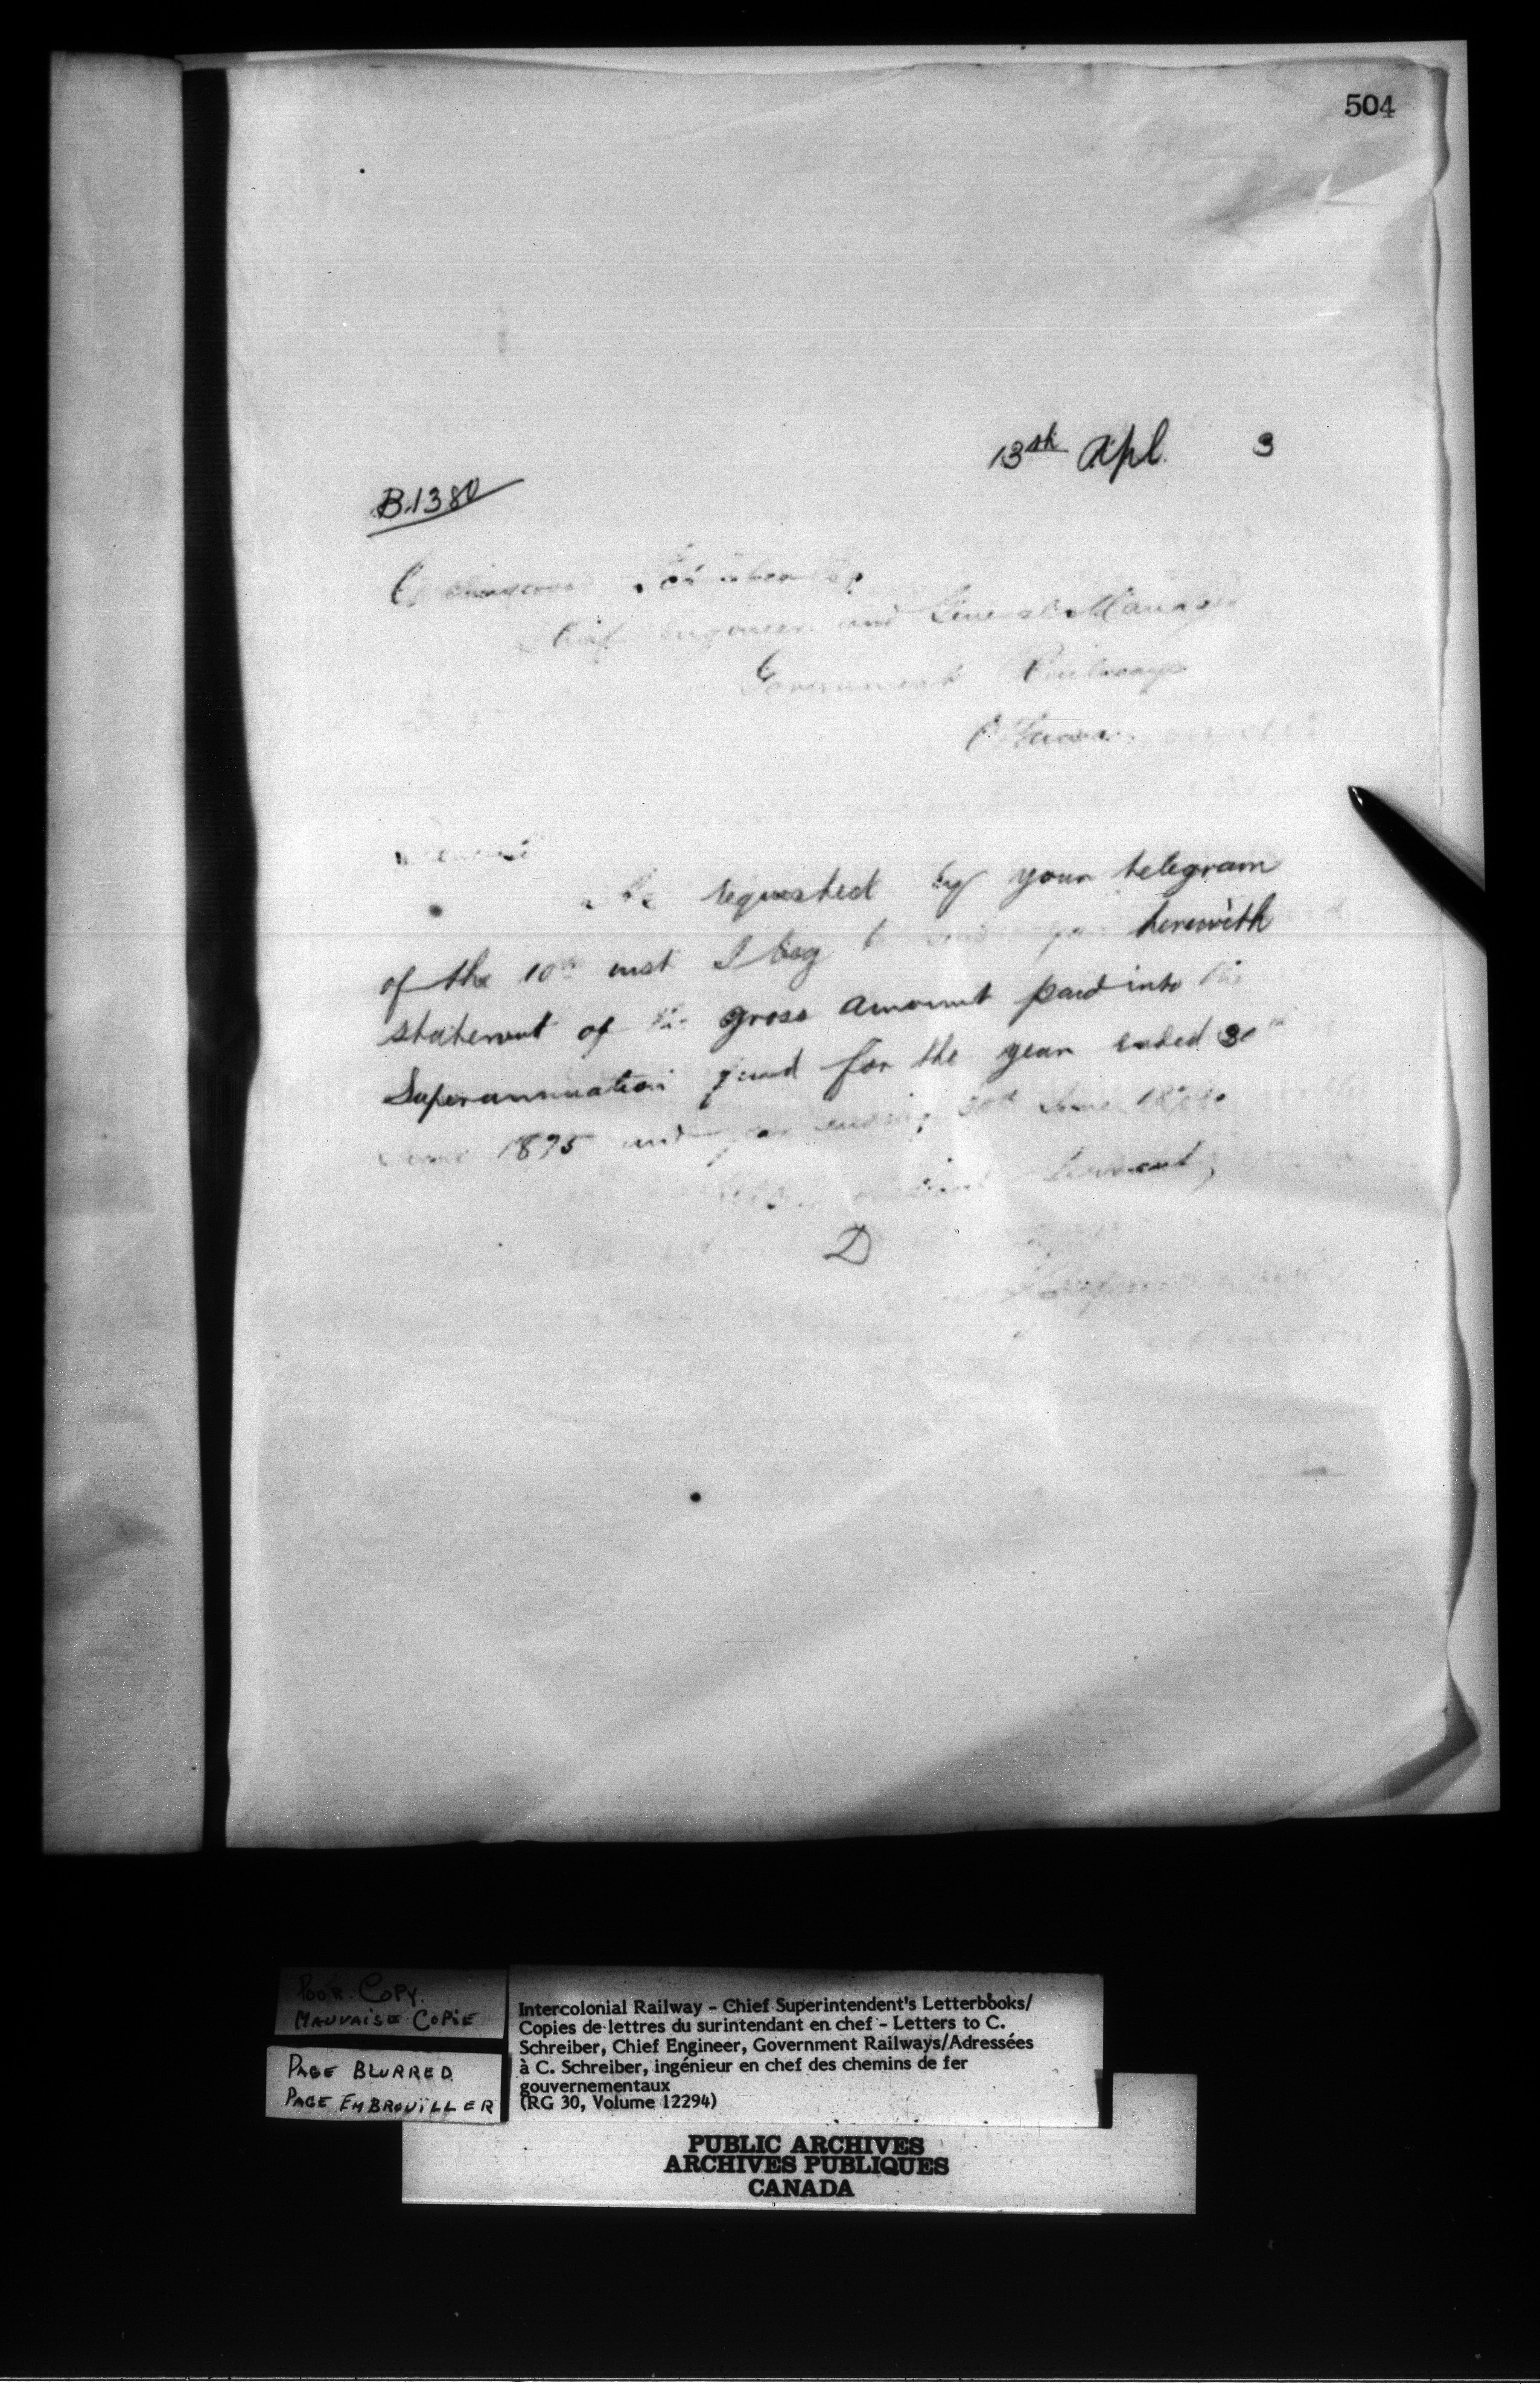 504
13th Apl. 3
B.1380
Chief Engineer and General Manager
Government Railways
Ottawa
As requested by your telegram
of the 10th inst I beg to send you herewith
statement of the gross amount paid into the
Superannuation fund for the year ended 30th
June 1875 and year ending 30th June
Servant,
D
POOR COPY.
MAUVAISE COPIE
PAGE BLURRED
PAGE EMBROUILLER
Intercolonial Railway - Chief Superintendent's Letterbooks/
Copies de lettres du surintendant en chef - Letters to C.
Schreiber, Chief Engineer, Government Railways/Adressées
à C. Schreiber, ingénieur en chef des chemins de fer
gouvernementaux
(RG 30, Volume 12294)
PUBLIC ARCHIVES
ARCHIVES PUBLIQUES
CANADA